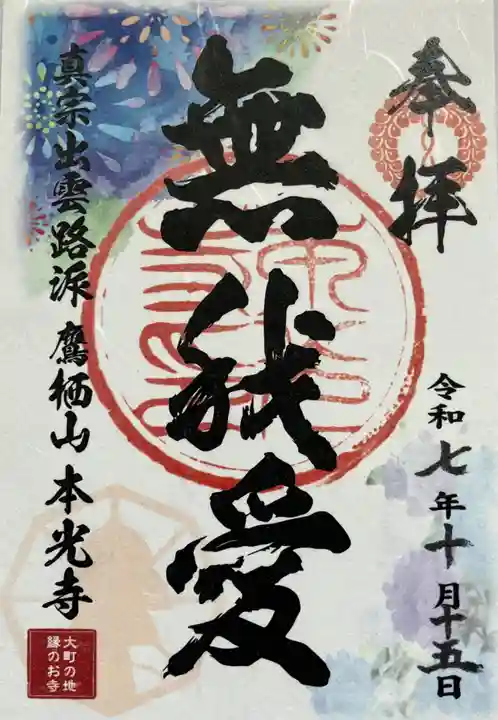 奉拝
令和七年十月十五日
無我愛
真宗出雲路派 鷹栖山 本光寺
大町の地
縁のお寺